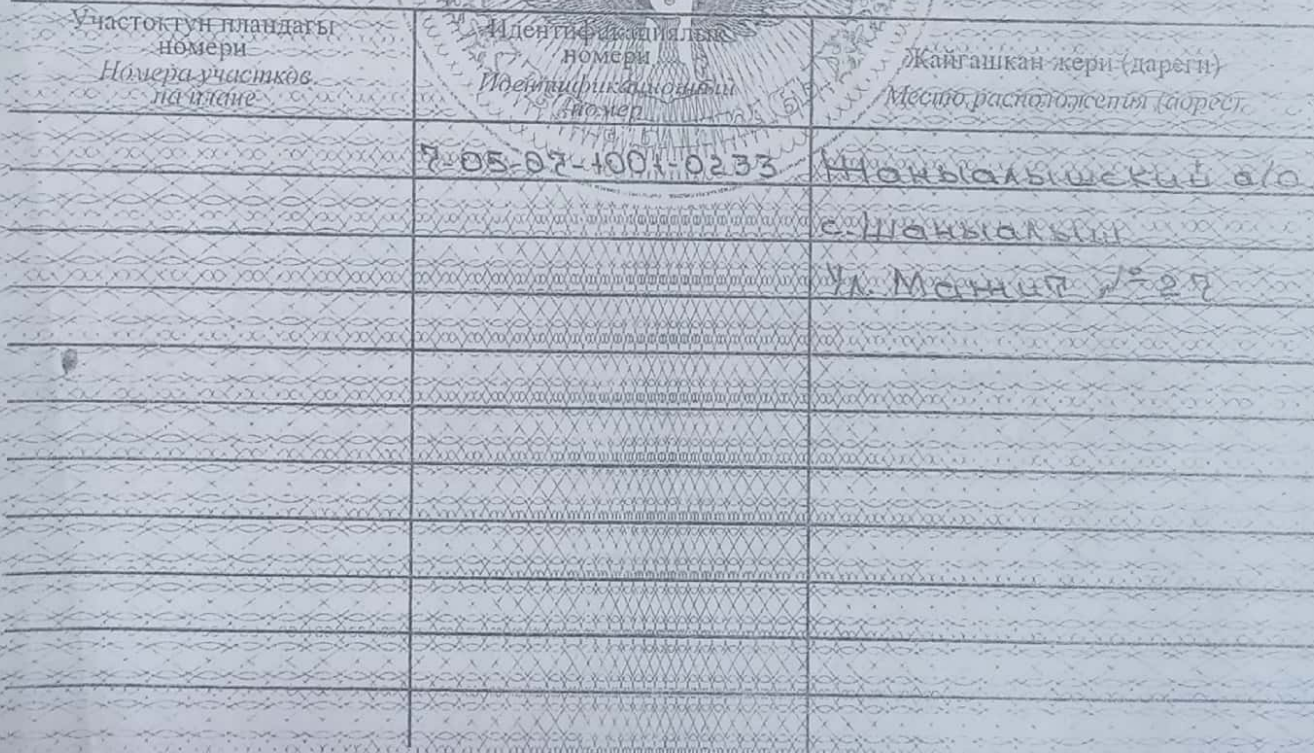 Участоктун пландагы
номери
Номера участков
на плане
Идентификациялык
номери
Идентификационный
номер
Жайгашкан жери (дареги)
Место расположения (адрес)
7-05-07-1001-0233
Жаныалышский а/о
с. Жаныалыш
Ул. Мажит № 27